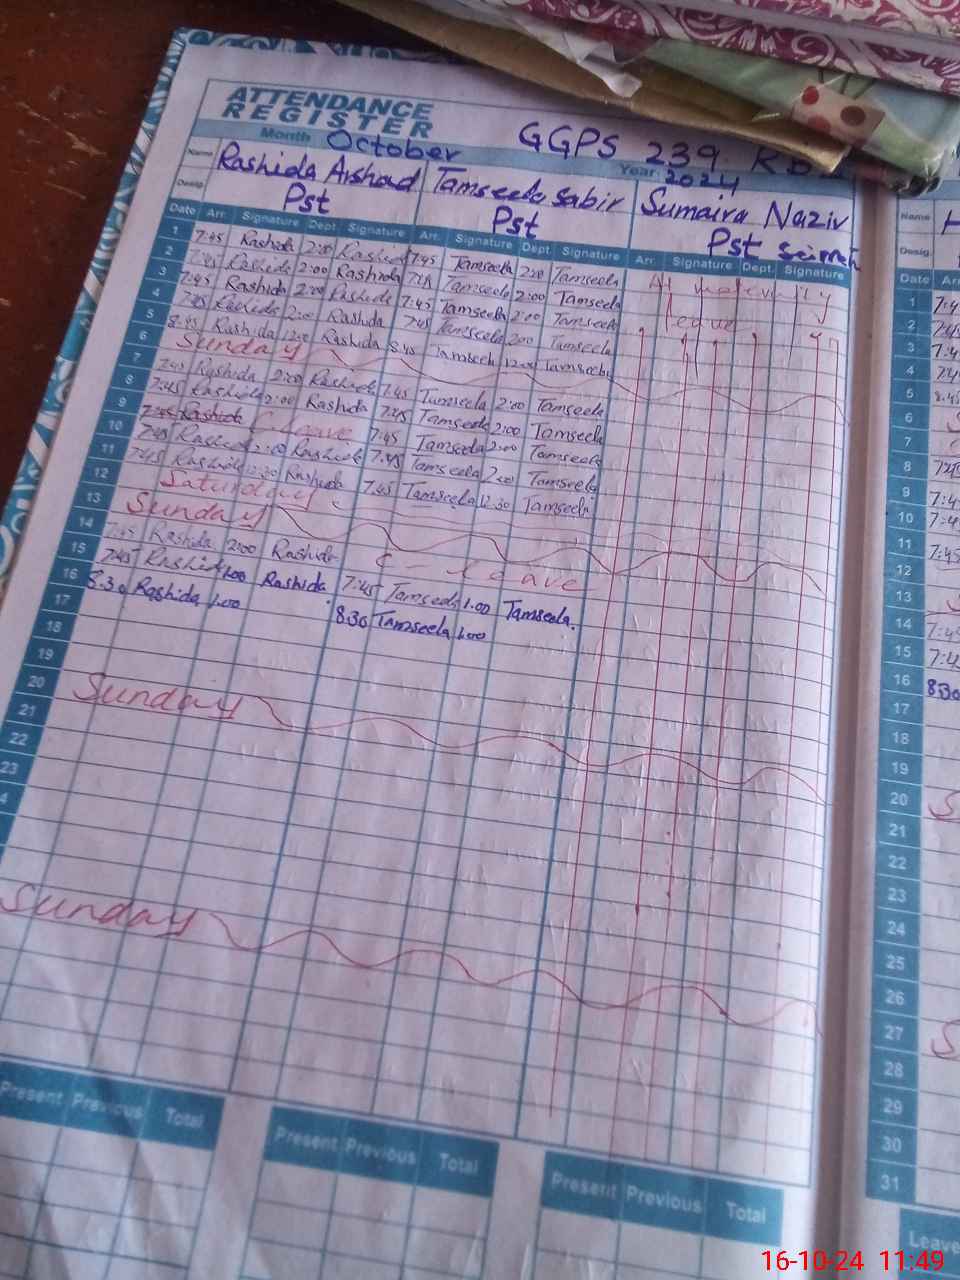 ATTENDANCE
REGISTER
GGPS 239 RB
Month October Year: 2024
Name Rashida Arshad Tamseela Sabir Sumaira Nazir
Desig. Pst Pst Pst
Date Arr. Signature Dept. Signature Arr. Signature Dept. Signature Arr. Signature Dept. Signature
1 7:45 Rashida 2:00 Rashida 7:45 Tamseela 2:00 Tamseela
2 7:45 Rashida 2:00 Rashida Tamseela 2:00 Tamseela
3 7:45 Rashida 2:00 Rashida 7:45 Tamseela 2:00 Tamseela
4 7:45 Rashida 2:00 Rashida 7:45 Tamseela 2:00 Tamseela
5 8:45 Rashida 12:00 Rashida 8:45 Tamseela 12:00 Tamseela
6 Sunday
7 7:45 Rashida 2:00 Rashida 7:45 Tamseela 2:00 Tamseela
8 7:45 Rashida 2:00 Rashida 7:45 Tamseela 2:00 Tamseela
9 7:45 Rashida C leave 7:45 Tamseela 2:00 Tamseela
10 7:45 Rashida 2:00 Rashida 7:45 Tamseela 2:00 Tamseela
11 7:45 Rashida 12:30 Rashida 7:45 Tamseela 12:30 Tamseela
12 Saturday
13 Sunday
14 7:45 Rashida 2:00 Rashida C leave
15 7:45 Rashida 1:00 Rashida 7:45 Tamseela 1.00 Tamseela.
16 8.30 Rashida 1.00 8:30 Tamseela 1:00
17
18
19
20 Sunday
21
22
23
4
Sunday
Present Previous Total
Present Previous Total
Present Previous Total
Name
Desig.
Date Arr
1 7:4
2 7:4
3 7:4
4 7:4
5 8:4
6 S
7
8 7:4
9 7:4
10 7:4
11 7:45
12
13
14 7:4
15 7:4
16 8:30
17
18
19
20 S
21
22
23
24
25
26
27 S
28
29
30
31
Leave
16-10-24 11:49